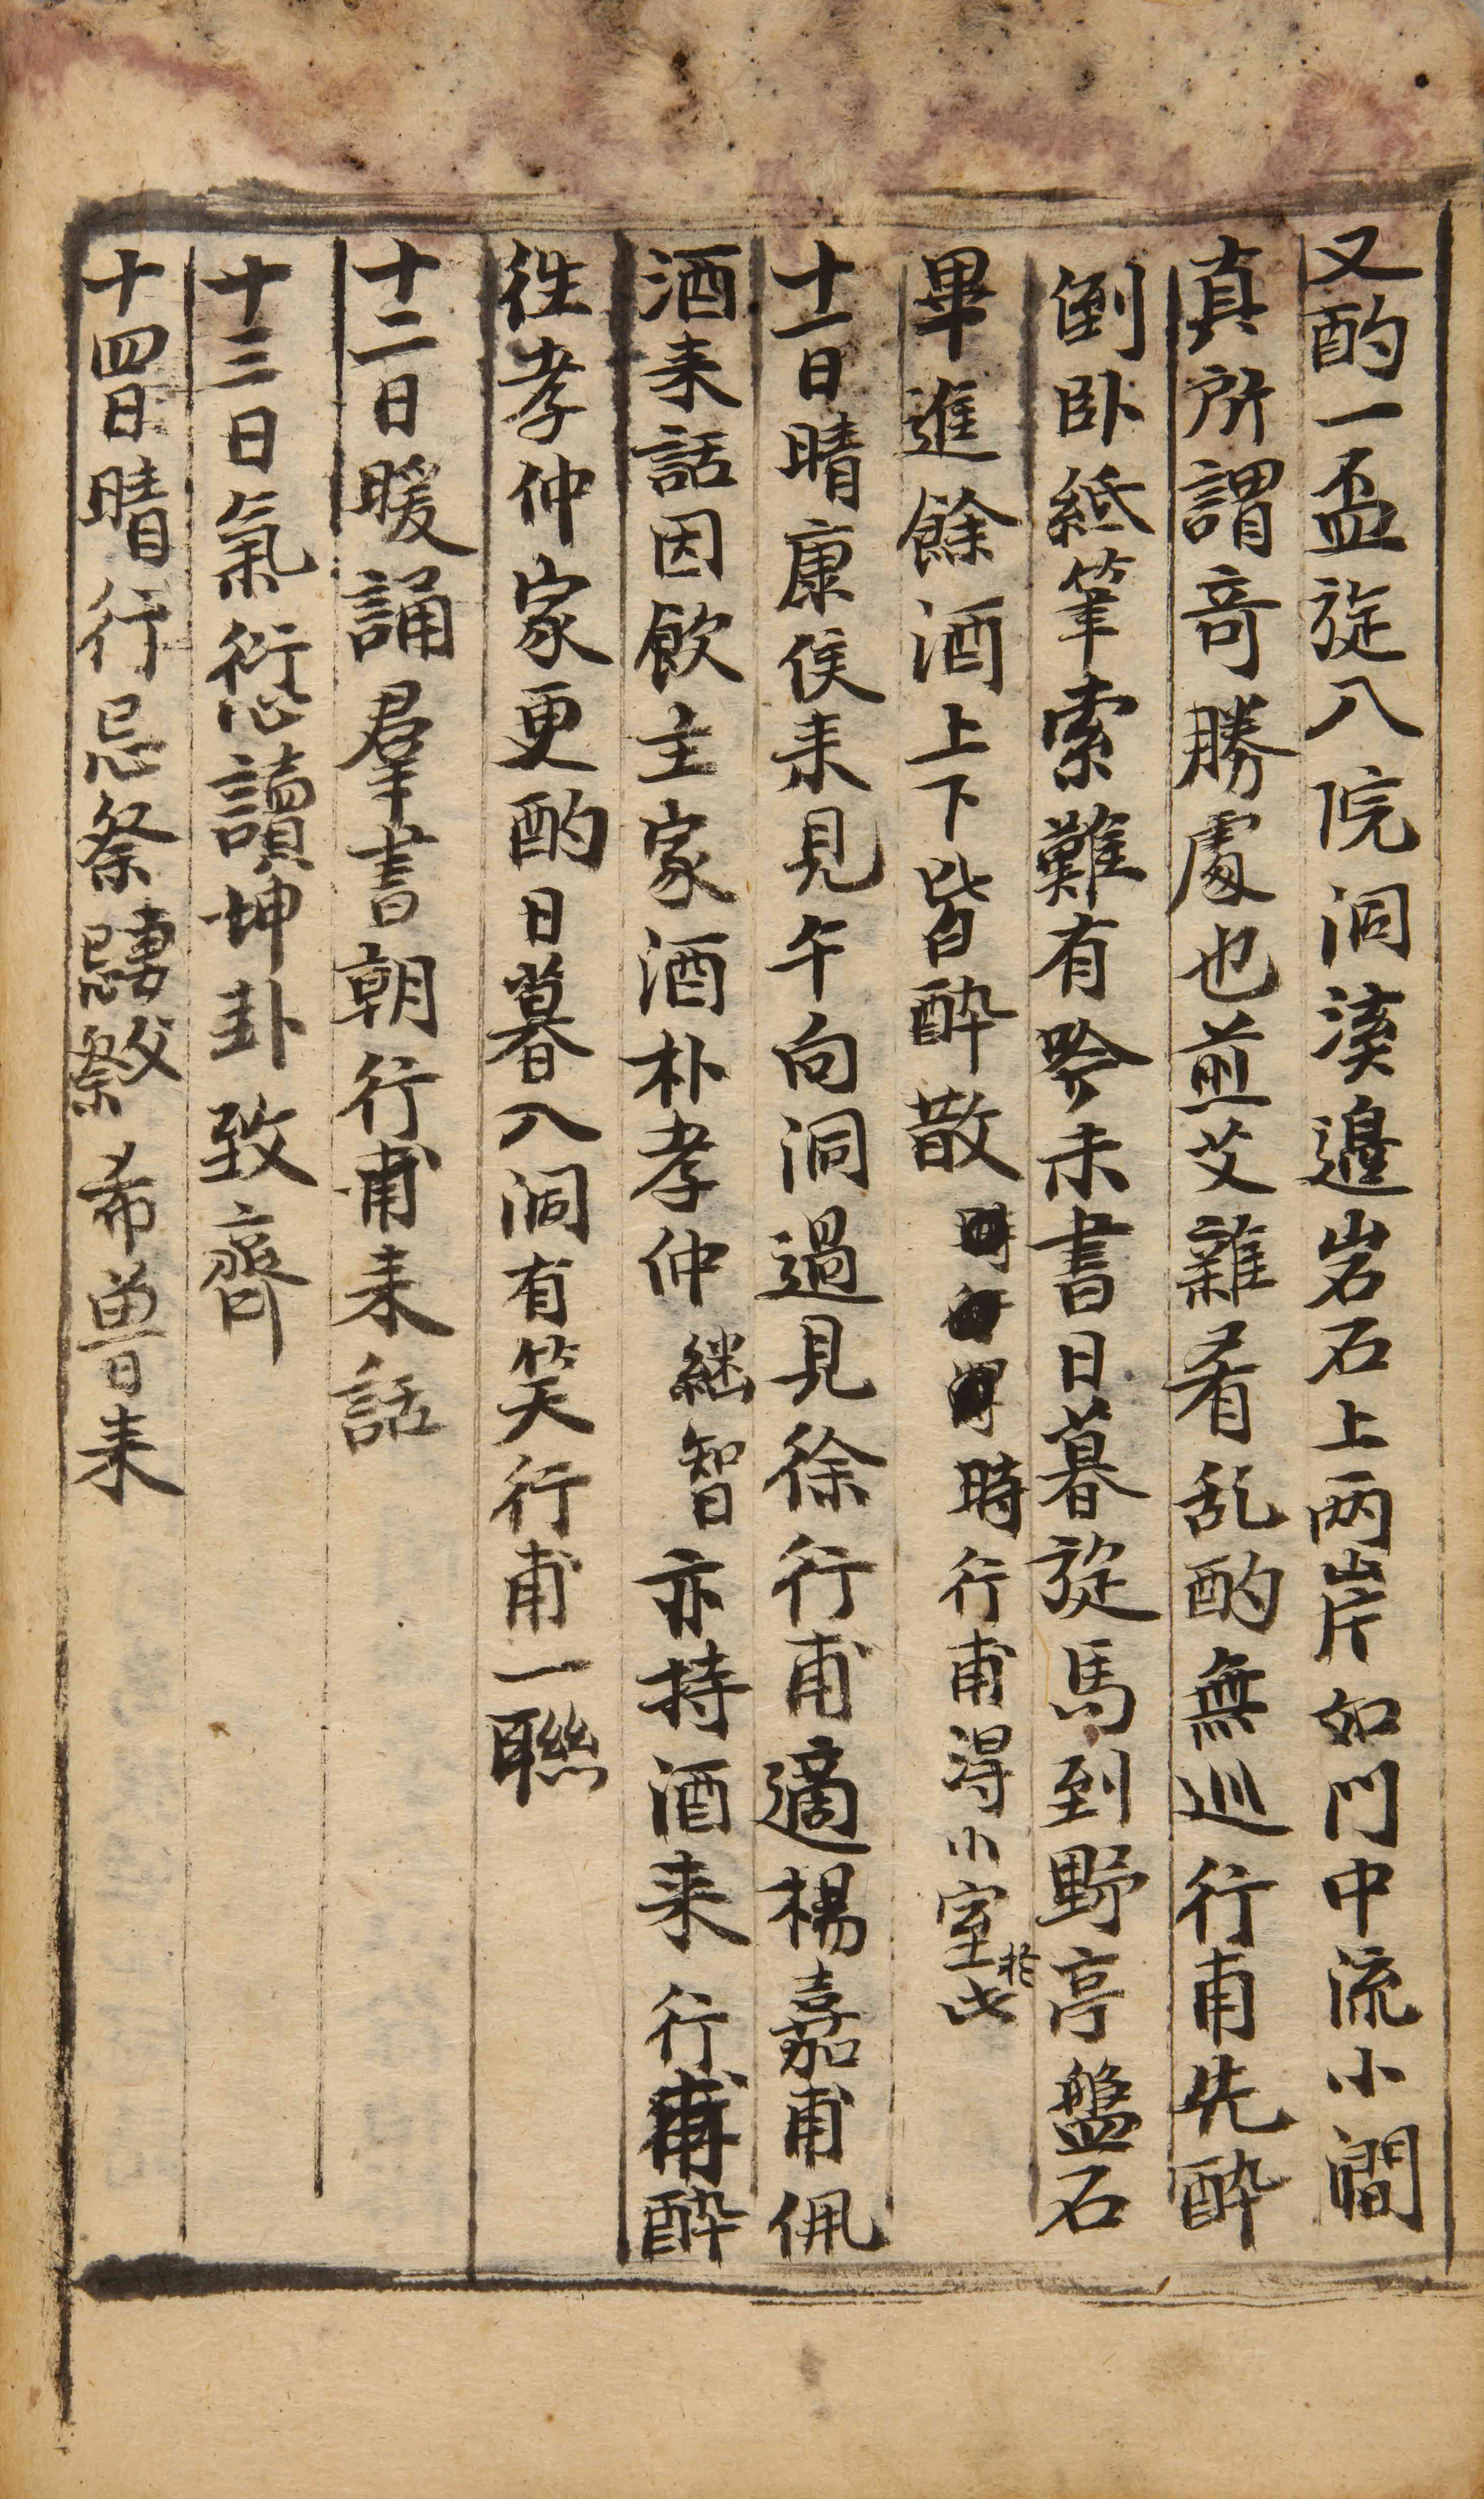 又酌一盃旋入院洞溪邊岩石上两岸如門中流小澗
真所謂奇勝處也煎艾雜肴乱酌無巡行甫先醉
倒卧紙筆索難有吟未書日暮旋馬到野亭盤石
畢進餘酒上下皆醉散時行甫得小室於此
十一日晴康侯来見午向洞過見徐行甫適楊嘉甫佩
酒来話因飲主家酒朴孝仲継智亦持酒来行甫醉
徃孝仲家更酌日暮入洞有笑行甫一聯
十二日暖誦羣書朝行甫来話
十三日氣愆讀坤卦致齊
十四日晴行忌祭希曾来